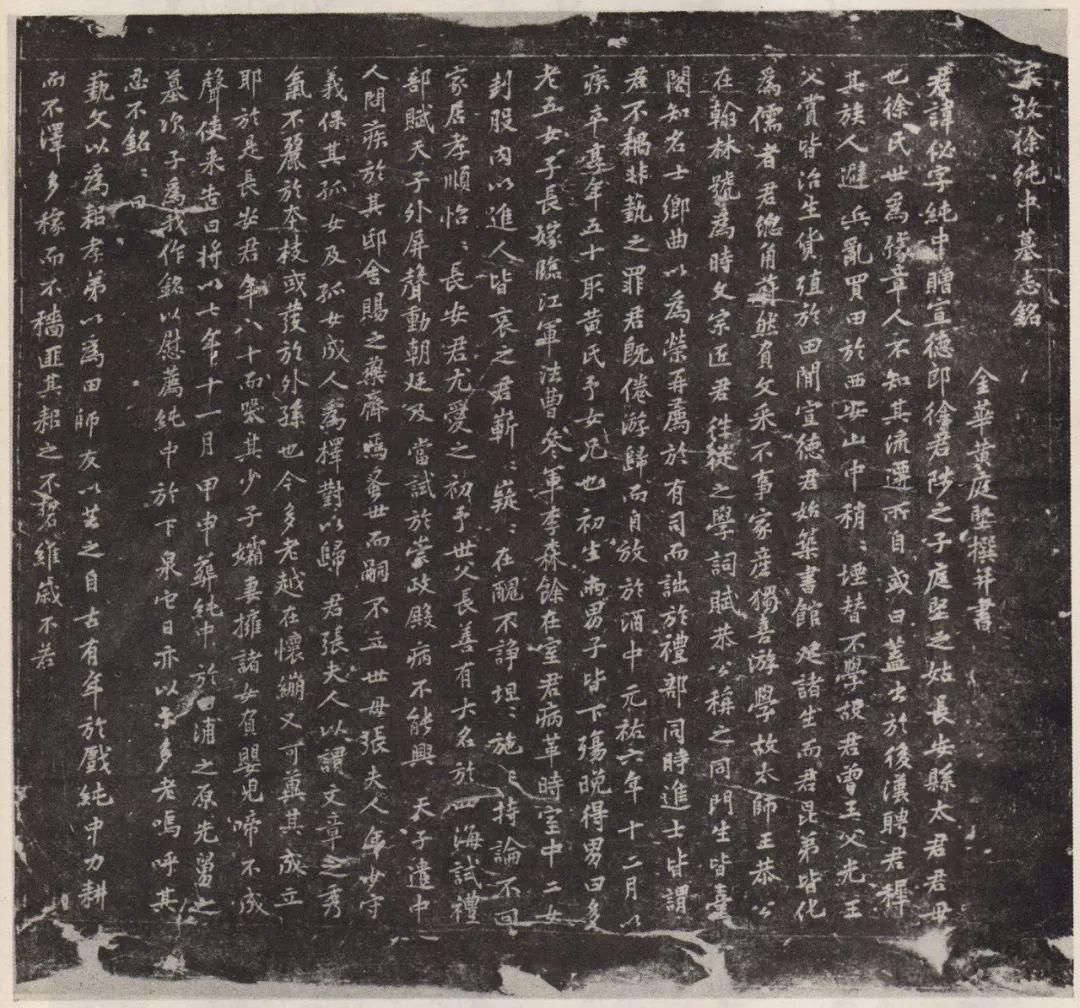 宋故徐純中墓志銘
金華黃庭堅撰并書
君諱佖字純中贈宣德郎徐君陟之子庭堅之姑長安縣太君君母
也徐氏世為豫章人不知其流遷所自或曰蓋出於後漢聘君穉
其族人避兵亂買田於西山中稍〻堙替不學故君曾王父光王
父賞皆治生貨殖於田間宣德君始築書館延諸生而君昆弟皆化
為儒者君緫角嶄然有文采不事家產獨喜游學故太師王恭公
在翰林號為時文宗匠君徃從之學詞賦恭公稱之同門生皆喜
闊知名士鄉曲以為榮再薦於有司而詘於禮部同時進士皆謂
君不耦非藝之罪君既倦游歸而自放於酒中元祐六年十二月以
疾卒享年五十耴黃氏予女兄也初生兩男子皆下殤晚得男曰多
老五女子長嫁臨江軍法曹參軍李森餘在室君病革時室中二女
刲股肉以進人皆哀之君嶄〻嶷〻在醜不諍坦〻施〻持論不回
家居孝順怡〻長安君尤愛之初予世父長善有大名於海試禮
部賦天子外屏聲動朝廷及當試於崇政殿病不能興天子遣中
人問疾於其邸舍賜之藥齊嗚蚤世而嗣不立世母張夫人年少守
義保其孤女及孤女成人為擇對以歸君張夫人以謂文章之秀
氣不麗於本枝或發於外孫也今多老越在懷繃又可冀其成立
耶於是長安君年八十而哭其少子孀妻擁諸女負嬰兒啼不成
聲使来告曰將以七年十一月甲申葬純中於浦之原先舅之
墓次子為我作銘以慰薦純中於下泉它日亦以示多老嗚呼其
忍不銘〻曰
藝文以為耜孝弟以為田師友以芸之自古有年於戲純中力耕
而不澤多稼而不穡匪其耜之不維歲不若